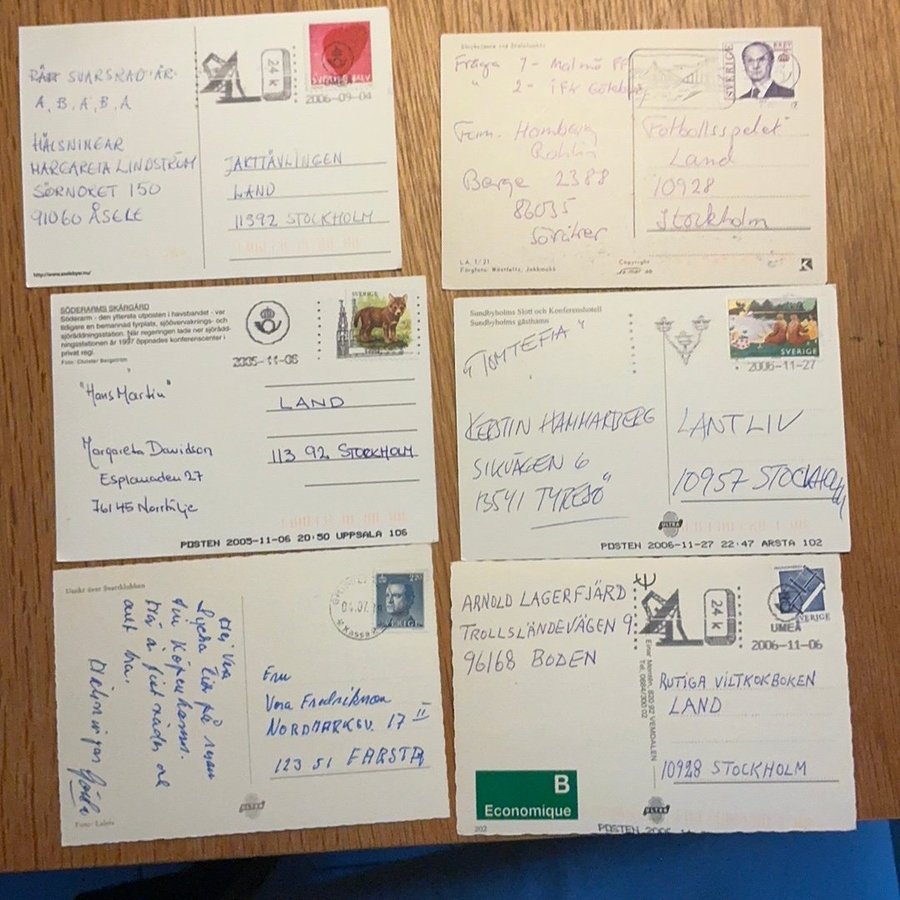 RÄTT SVARSRAD ÄR
A, B, A, B, A
HÄLSNINGAR
MARGARETA LINDSTRÖM
SÖRNORET 150
91060 ÅSELE
24 k
2006-09-04
JAKTTÄVLINGEN
LAND
11392 STOCKHOLM
Fråga 1 - Malmö FF
" 2 - IFK Göteborg
Fam. Homberg
Berge 2388
86035
Söråker
L.A. 1/21
Färgfoto: Westfeltz, Jokkmokk
Copyright
SVERIGE
BREV
Fotbollsspelet
Land
10928
Stockholm
K
SÖDERARMS SKÄRGÅRD
Söderarm - den yttersta utposten i havsbandet - var
tidigare en bemannad fyrplats, sjöövervaknings- och
sjöräddningsstation. När regeringen lade ner sjörädd-
ningsstationen år 1997 öppnades konferenscenter i
privat regi.
Foto: Christer Bergström
SVERIGE
2005-11-06
"Hans Martin"
Margareta Davidson
Esplanaden 27
76145 Norrtälje
LAND
113 92 STOCKHOLM
POSTEN 2005-11-06 20:50 UPPSALA 106
Sundbyholms Slott och Konferenshotell
Sundbyholms gästhamn
"TOMTEFIA"
KERSTIN HAMMARBERG
SIKVÄGEN 6
13541 TYRESÖ
SVERIGE
2006-11-27
LANTLIV
10957 STOCKHOLM
ULTRA
POSTEN 2006-11-27 22:47 ARSTA 102
Utsikt över Svartklubben
Hej Vera
2.20
SVERIGE
Kassa
Fru
Vera Fredrikson
NORDMARKSV. 17 II
123 51 FARSTA
ULTRA
ARNOLD LAGERFJÄRD
TROLLSLÄNDEVÄGEN 9
96168 BODEN
24 k
UMEÅ
SVERIGE
2006-11-06
RUTIGA VILTKOKBOKEN
LAND
10928 STOCKHOLM
B
Economique
ULTRA
202